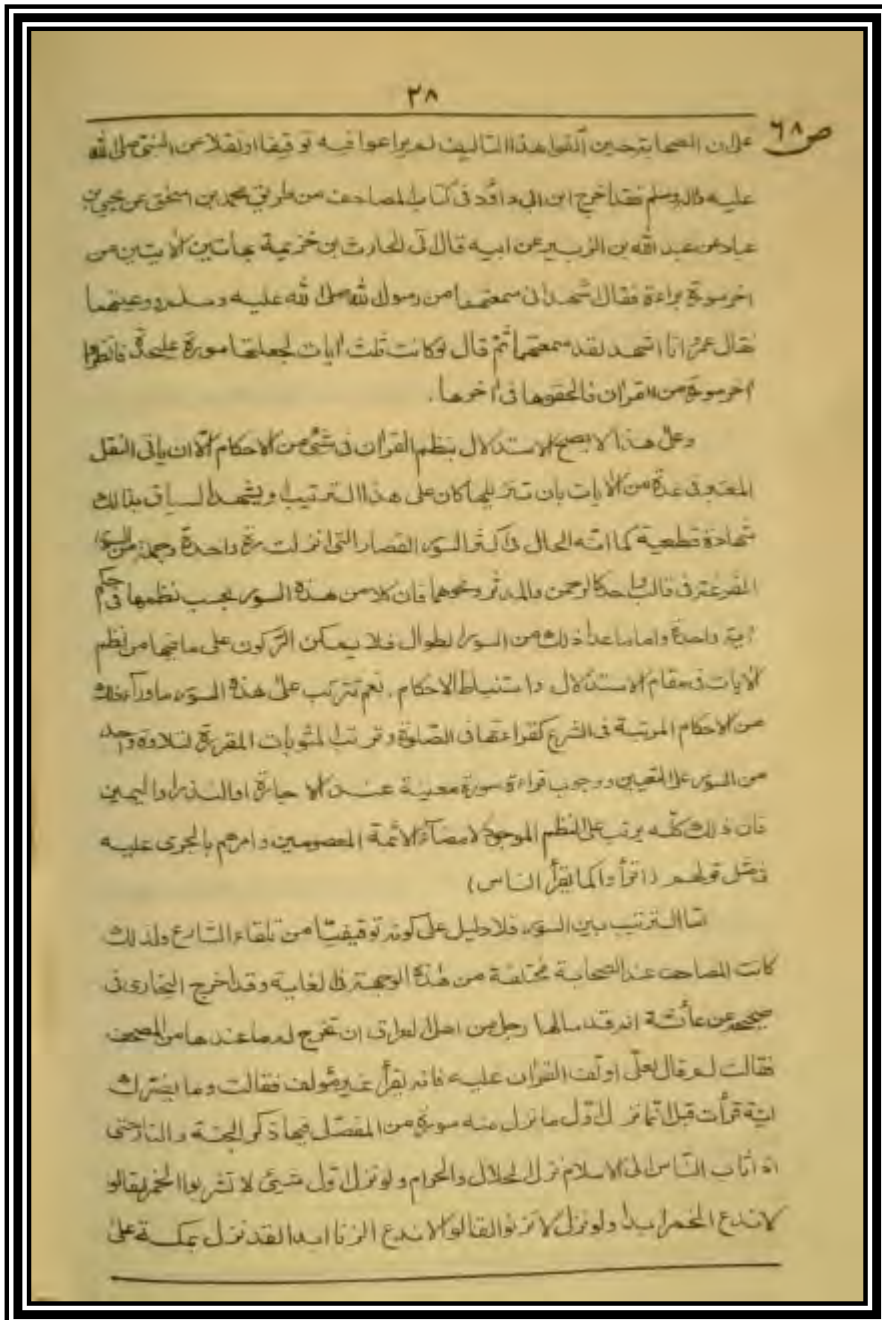 ٢٨
ص ٦٨
على ان الصحابة حين ألفوا هذا التاليف لم يراعوا فيه توقيفا او نقلا عن النبي صلى الله
عليه واله وسلم فقد اخرج ابن ابي داؤد فى كتاب المصاحف من طريق محمد بن اسحق عن يحيى بن
عباد عن عبد الله بن الزبير عن ابيه قال اتى الحارث بن خزيمة بهاتين الايتين من
اخر سورة براءة فقال اشهد انى سمعتهما من رسول الله صلى الله عليه وسلم ووعيتهما
فقال عمر وانا اشهد لقد سمعتهما ثم قال لو كانت ثلث ايات لجعلتها سورة عليحدة فانظروا
اخر سورة من القران فالحقوها فى اخرها .
وعلى هذا لا يصح الاستدلال بنظم القران فى شئ من الاحكام الا ان ياتى النقل
المعتبر فى عدة من الايات بان تنزيلها كان على هذا الترتيب او يشهد السياق بذالك
شهادة قطعية كما انه الحال فى اكثر السور القصار التى انزلت مرة واحدة وجملة من السور
المفرغة فى قالب واحد كالرحمن والمدثر ونحوهما فان كلا من هذه السور يجب نظمها فى حكم
اية واحدة واما ما عدا ذلك من السور الطوال فلا يمكن الركون على ما فيها من نظم
الايات فى مقام الاستدلال واستنباط الاحكام . نعم تترتب على هذه السور ما وراء ذلك
من الاحكام المرتبة فى الشرع كقراءتها فى الصلوة وترتب المثوبات المقررة لتلاوة واحد
من السور على التعيين ووجوب قراءة سورة معينة عند الاجارة او النذر او اليمين
فان ذلك كله يرتب على النظم الموجود لامضاء الائمة المعصومين وامرهم بالجرى عليه
فى مثل قولهم (اقرأ واكما يقرأ الناس)
اما الترتيب بين السور فلا دليل على كونه توقيفيا من تلقاء الشارع ولذلك
كانت المصاحف عند الصحابة مختلفة من هذه الوجهة فى الغاية وقد اخرج البخارى فى
صحيحه عن عائشة انه قد سالها رجل من اهل العراق ان تخرج له ما عندها من المصحف
فقالت لم قال لعلى اولف القران عليه فانه يقرأ غير مؤلف فقالت وما يضرك
اية قرأت قبل انما نزل اول ما نزل منه سورة من المفصل فيها ذكر الجنة والنار حتى
اذا ثاب الناس الى الاسلام نزل الحلال والحرام ولو نزل اول شيئ لا تشربوا الخمر لقالو
لا ندع الخمر ابدا ولو نزل لا تزنوا لقالوا لا ندع الزنا ابدا لقد نزل بمكة على